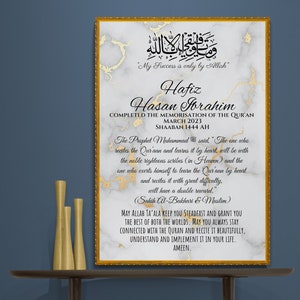 وما توفيقي إلا بالله
"My Success is only by Allah"
Hafiz
Hasan Ibrahim
COMPLETED THE MEMORISATION OF THE QUR'AN
MARCH 2023
SHAABAN 1444 AH
The Prophet Muhammad ﷺ said, "The one who
recites the Qur'aan and learns it by heart, will be with the
noble righteous scribes (in Heaven) and the
one who exerts himself to learn the Qur'aan by heart
and recites it with great difficulty,
will have a double reward."
(Sahih Al-Bukhari & Muslim)
MAY ALLAH TA'ALA KEEP YOU STEADFAST AND GRANT YOU
THE BEST OF BOTH THE WORLDS. MAY YOU ALWAYS STAY
CONNECTED WITH THE QURAN AND RECITE IT BEAUTIFULLY,
UNDERSTAND AND IMPLEMENT IT IN YOUR LIFE.
AMEEN.